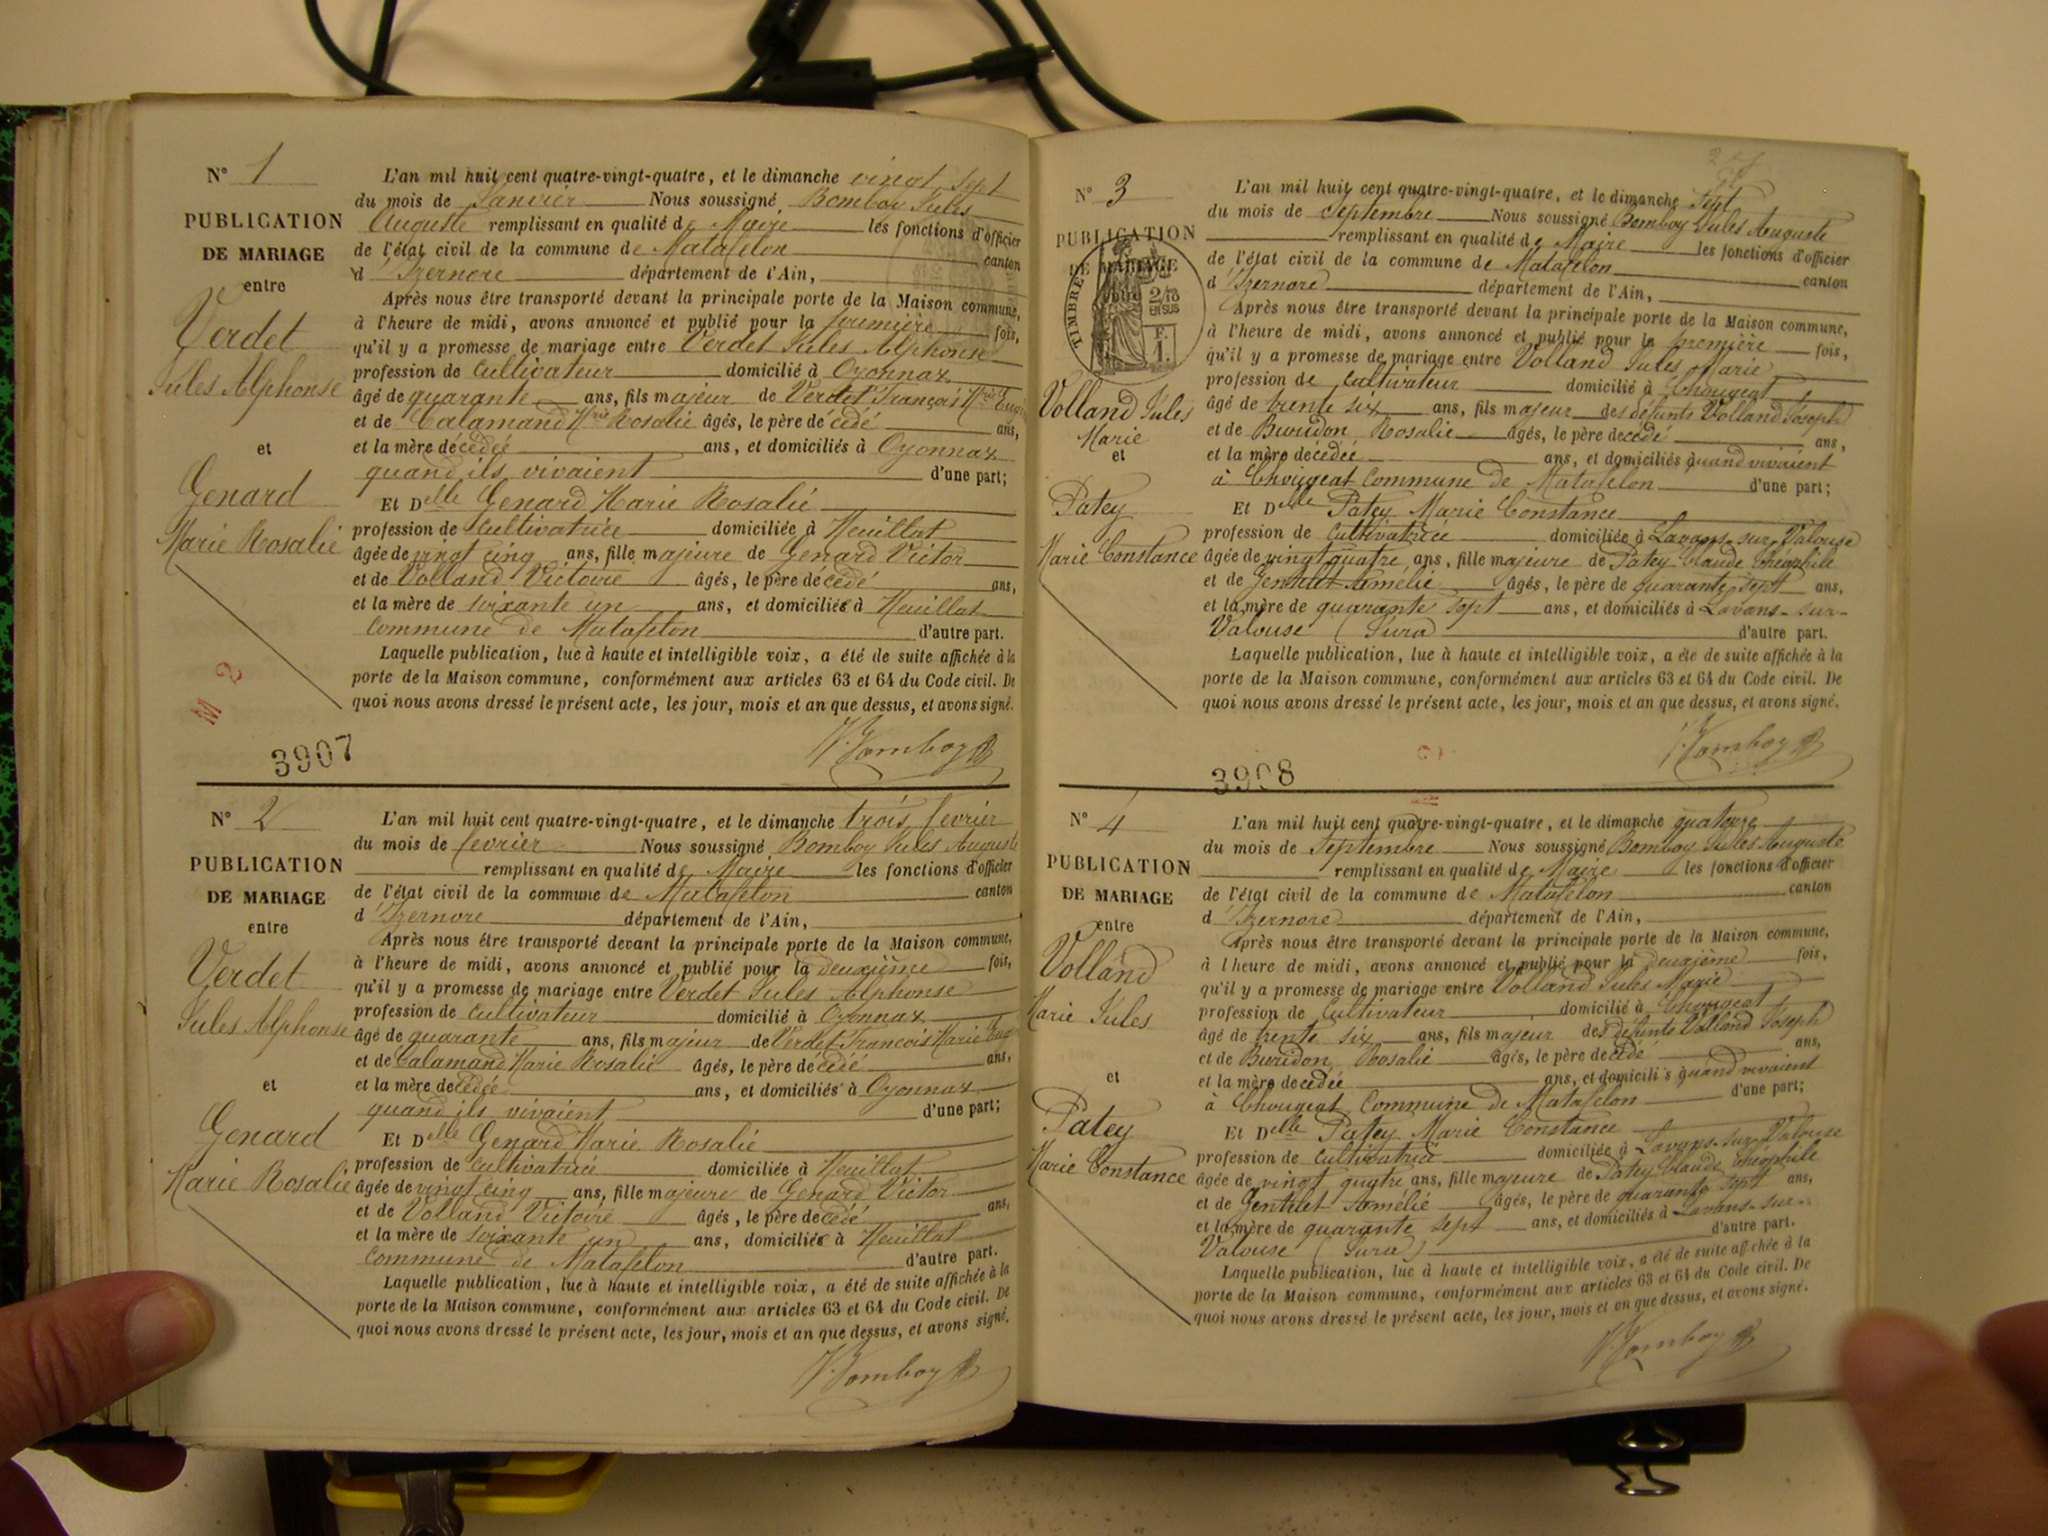 N° 1
PUBLICATION
DE MARIAGE
entre
Verdet
Jules Alphonse
et
Genard
Marie Rosalie
L'an mil huit cent quatre-vingt-quatre, et le dimanche vingt sept
du mois de Janvier Nous soussigné Bomboy Jules
Auguste remplissant en qualité de Maire les fonctions d'officier
de l'état civil de la commune de Matafelon canton
d'Izernore département de l'Ain,
Après nous être transporté devant la principale porte de la Maison commune,
à l'heure de midi, avons annoncé et publié pour la première fois,
qu'il y a promesse de mariage entre Verdet Jules Alphonse
profession de Cultivateur domicilié à Oyonnax
âgé de quarante ans, fils majeur de Verdet François Mrie
et de Calamand Mrie Rosalie âgés, le père décédé ans,
et la mère décédée ans, et domiciliés à Oyonnax
quand ils vivaient d'une part;
Et Delle Genard Marie Rosalie
profession de Cultivatrice domiciliée à Heuillat
âgée de vingt cinq ans, fille majeure de Genard Victor
et de Volland Victoire âgés, le père décédé ans,
et la mère de soixante un ans, et domiciliée à Heuillat
Commune de Matafelon d'autre part.
Laquelle publication, lue à haute et intelligible voix, a été de suite affichée à la
porte de la Maison commune, conformément aux articles 63 et 64 du Code civil. De
quoi nous avons dressé le présent acte, les jour, mois et an que dessus, et avons signé.
M 2
3907
Bomboy
N° 2
PUBLICATION
DE MARIAGE
entre
Verdet
Jules Alphonse
et
Genard
Marie Rosalie
L'an mil huit cent quatre-vingt-quatre, et le dimanche trois fevrier
du mois de fevrier Nous soussigné Bomboy Jules Auguste
remplissant en qualité de Maire les fonctions d'officier
de l'état civil de la commune de Matafelon canton
d'Izernore département de l'Ain,
Après nous être transporté devant la principale porte de la Maison commune,
à l'heure de midi, avons annoncé et publié pour la deuxième fois,
qu'il y a promesse de mariage entre Verdet Jules Alphonse
profession de Cultivateur domicilié à Oyonnax
âgé de quarante ans, fils majeur de Verdet François Marie
et de Calamand Marie Rosalie âgés, le père décédé ans,
et la mère décédée ans, et domiciliés à Oyonnax
quand ils vivaient d'une part;
Et Delle Genard Marie Rosalie
profession de Cultivatrice domiciliée à Heuillat
âgée de vingt cinq ans, fille majeure de Genard Victor
et de Volland Victoire âgés, le père décédé ans,
et la mère de soixante un ans, domiciliée à Heuillat
Commune de Matafelon d'autre part.
Laquelle publication, lue à haute et intelligible voix, a été de suite affichée à la
porte de la Maison commune, conformément aux articles 63 et 64 du Code civil. De
quoi nous avons dressé le présent acte, les jour, mois et an que dessus, et avons signé.
Bomboy
N° 3
PUBLICATION
DE MARIAGE
entre
TIMBRE
2/10
EN SUS
F.
1.
Volland Jules
Marie
et
Patey
Marie Constance
L'an mil huit cent quatre-vingt-quatre, et le dimanche sept
du mois de Septembre Nous soussigné Bomboy Jules Auguste
remplissant en qualité de Maire les fonctions d'officier
de l'état civil de la commune de Matafelon canton
d'Izernore département de l'Ain,
Après nous être transporté devant la principale porte de la Maison commune,
à l'heure de midi, avons annoncé et publié pour la première fois,
qu'il y a promesse de mariage entre Volland Jules Marie
profession de Cultivateur domicilié à Chougeat
âgé de trente six ans, fils majeur des défunts Volland Joseph
et de Buridon Rosalie âgés, le père decédé ans,
et la mère décédée ans, et domiciliés quand vivaient
à Chougeat Commune de Matafelon d'une part;
Et Delle Patey Marie Constance
profession de Cultivatrice domiciliée à Lavans-sur-Valouse
âgée de vingt quatre ans, fille majeure de Patey Claude Théophile
et de Gentelet Amélie âgés, le père de quarante sept ans,
et la mère de quarante sept ans, et domiciliés à Lavans-sur-
Valouse (Jura) d'autre part.
Laquelle publication, lue à haute et intelligible voix, a été de suite affichée à la
porte de la Maison commune, conformément aux articles 63 et 64 du Code civil. De
quoi nous avons dressé le présent acte, les jour, mois et an que dessus, et avons signé.
Bomboy
3908
N° 4
PUBLICATION
DE MARIAGE
entre
Volland
Marie Jules
et
Patey
Marie Constance
L'an mil huit cent quatre-vingt-quatre, et le dimanche quatorze
du mois de Septembre Nous soussigné Bomboy Jules Auguste
remplissant en qualité de Maire les fonctions d'officier
de l'état civil de la commune de Matafelon canton
d'Izernore département de l'Ain,
Après nous être transporté devant la principale porte de la Maison commune,
à l'heure de midi, avons annoncé et publié pour la deuxième fois,
qu'il y a promesse de mariage entre Volland Jules Marie
profession de Cultivateur domicilié à Chougeat
âgé de trente six ans, fils majeur des défunts Volland Joseph
et de Buridon Rosalie âgés, le père decédé ans,
et la mère decédée ans, et domiciliés quand vivaient
à Chougeat Commune de Matafelon d'une part;
Et Delle Patey Marie Constance
profession de Cultivatrice domiciliée à Lavans-sur-Valouse
âgée de vingt quatre ans, fille majeure de Patey Claude Théophile
et de Gentelet Amélie âgés, le père de quarante sept ans,
et la mère de quarante sept ans, et domiciliés à Lavans-sur-
Valouse (Jura) d'autre part.
Laquelle publication, lue à haute et intelligible voix, a été de suite affichée à la
porte de la Maison commune, conformément aux articles 63 et 64 du Code civil. De
quoi nous avons dressé le présent acte, les jour, mois et an que dessus, et avons signé.
Bomboy